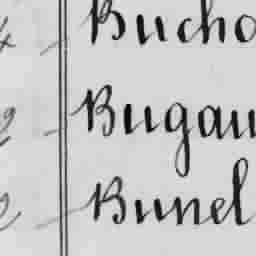 Bucho
Bugau
Bunel